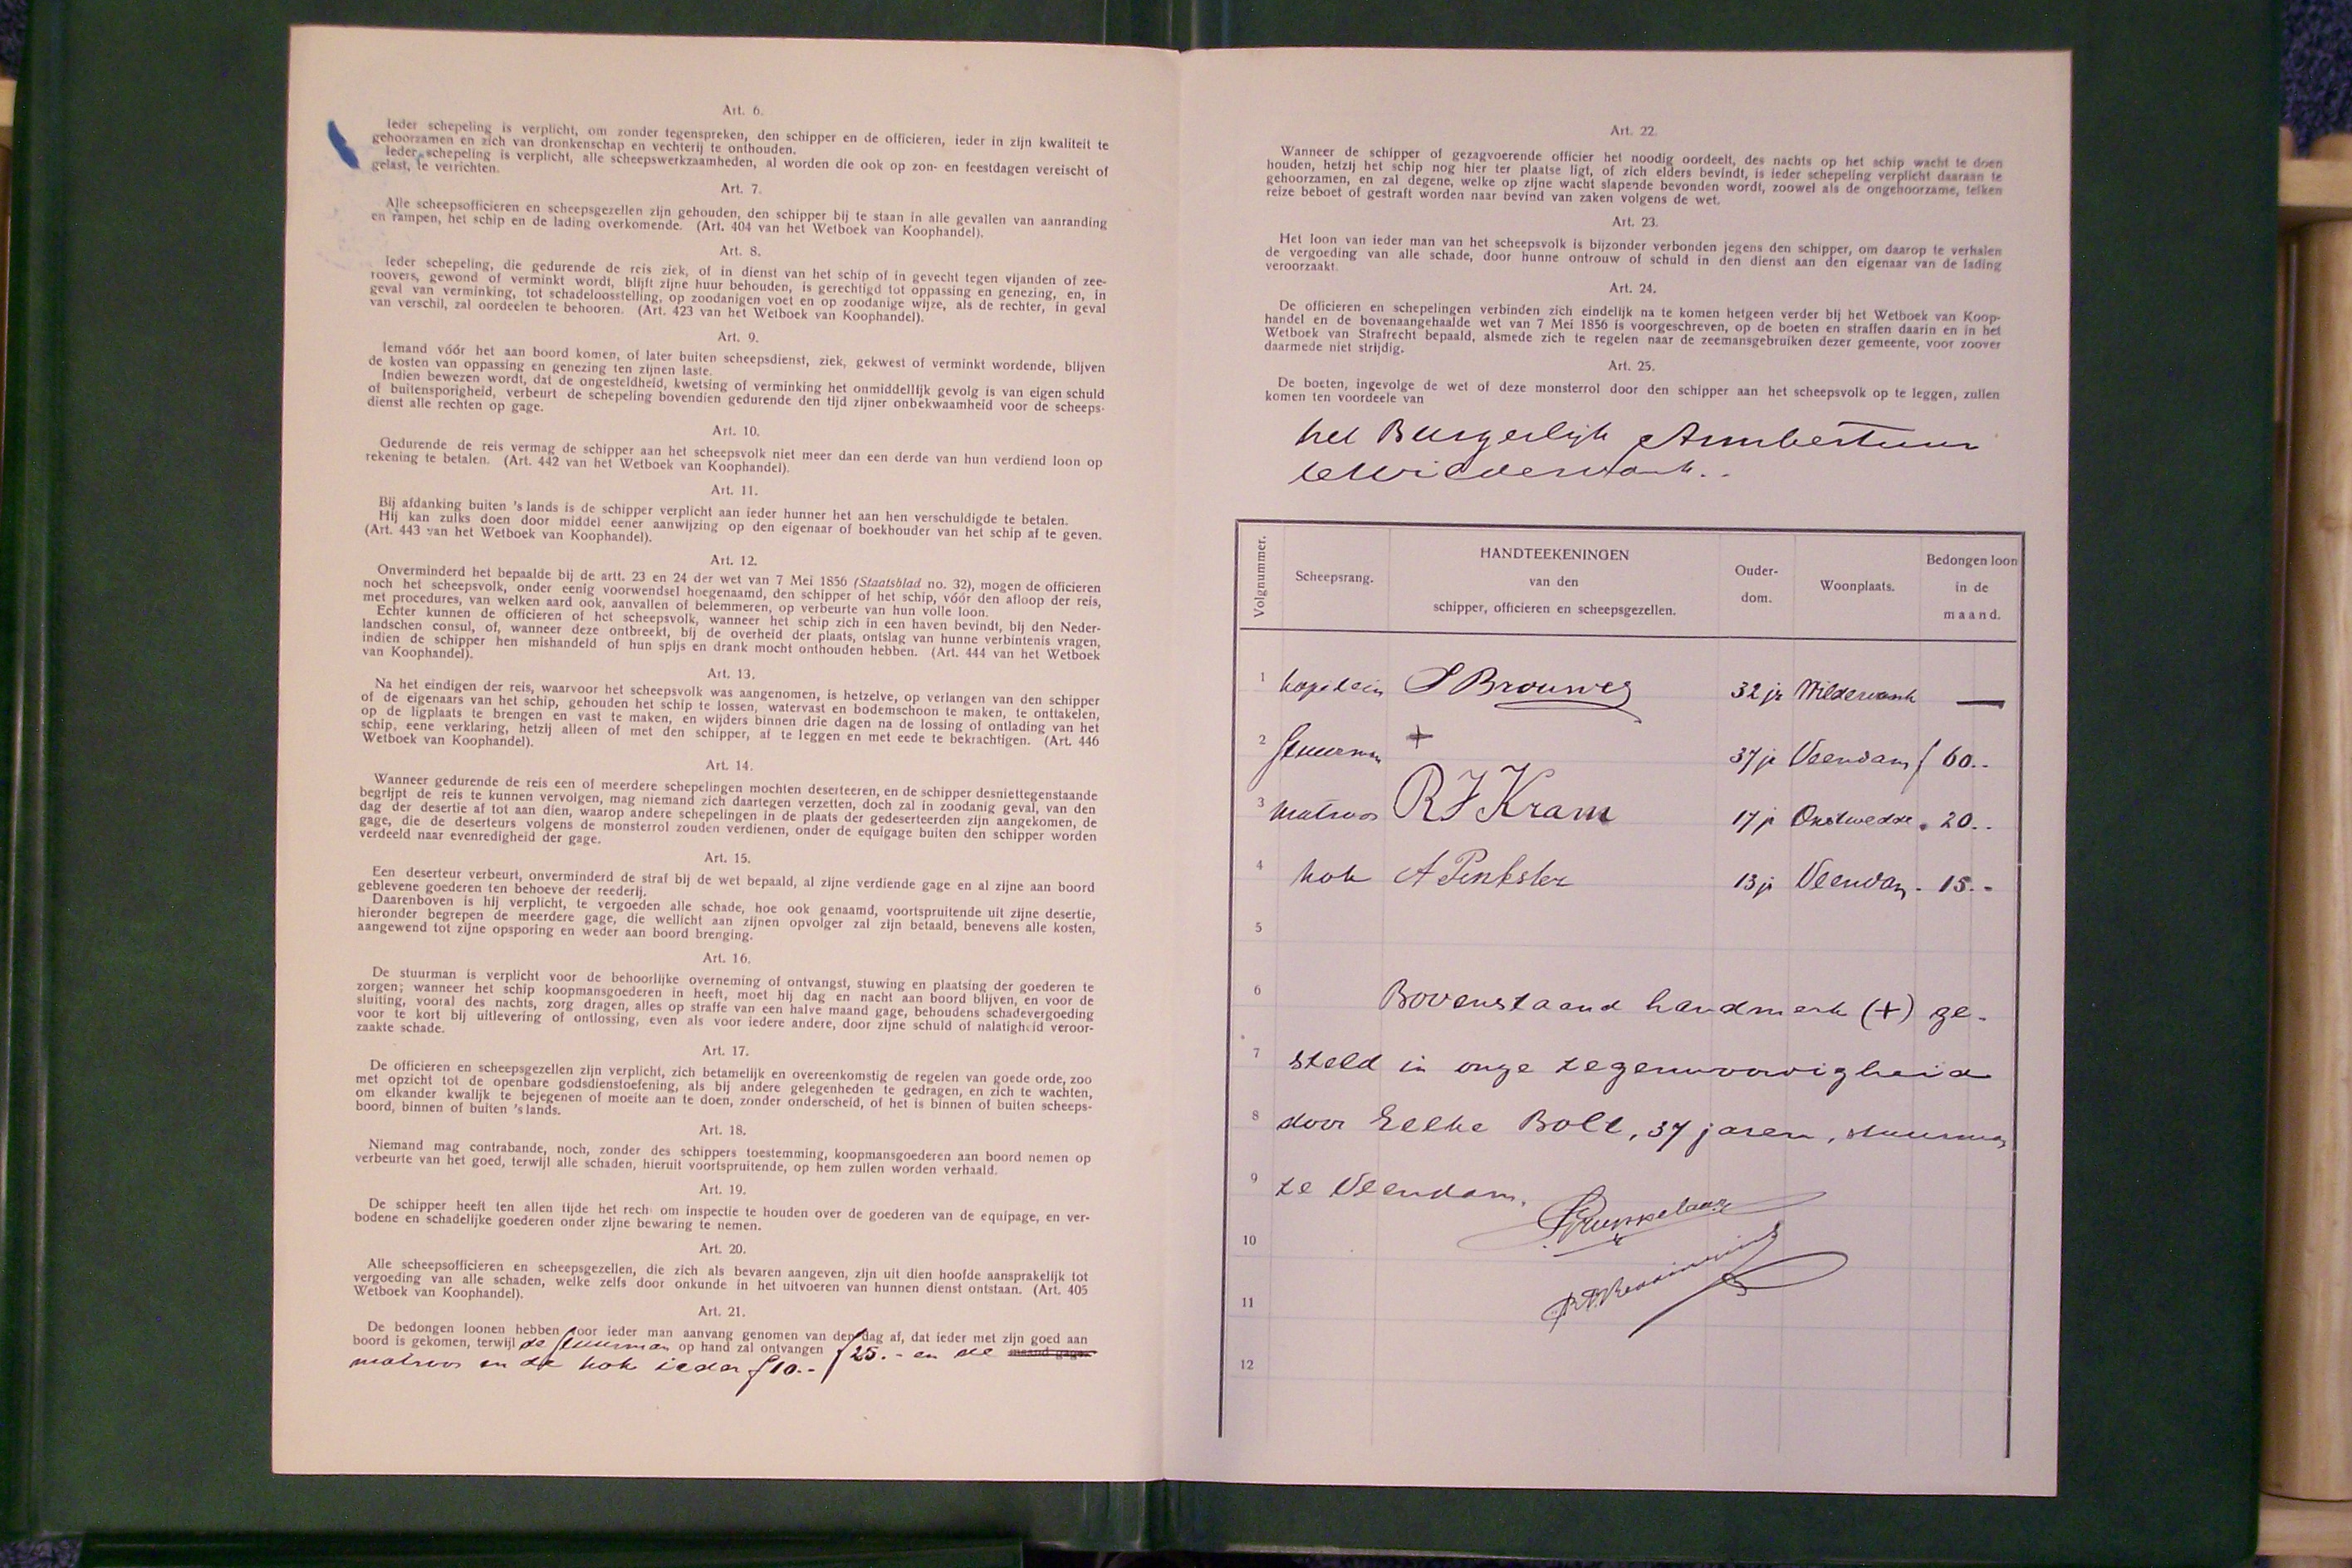 Art. 6.
Ieder schepeling is verplicht, om zonder tegenspreken, den schipper en de officieren, ieder in zijn kwaliteit te
gehoorzamen en zich van dronkenschap en vechterij te onthouden.
Ieder schepeling is verplicht, alle scheepswerkzaamheden, al worden die ook op zon- en feestdagen vereischt of
gelast, te verrichten.
Art. 7.
Alle scheepsofficieren en scheepsgezellen zijn gehouden, den schipper bij te staan in alle gevallen van aanranding
en rampen, het schip en de lading overkomende. (Art. 404 van het Wetboek van Koophandel).
Art. 8.
Ieder schepeling, die gedurende de reis ziek, of in dienst van het schip of in gevecht tegen vijanden of zee-
roovers, gewond of verminkt wordt, blijft zijne huur behouden, is gerechtigd tot oppassing en genezing, en, in
geval van verminking, tot schadeloosstelling, op zoodanigen voet en op zoodanige wijze, als de rechter, in geval
van verschil, zal oordeelen te behooren. (Art. 423 van het Wetboek van Koophandel).
Art. 9.
Iemand vóór het aan boord komen, of later buiten scheepsdienst, ziek, gekwest of verminkt wordende, blijven
de kosten van oppassing en genezing ten zijnen laste.
Indien bewezen wordt, dat de ongesteldheid, kwetsing of verminking het onmiddellijk gevolg is van eigen schuld
of buitensporigheid, verbeurt de schepeling bovendien gedurende den tijd zijner onbekwaamheid voor de scheeps-
dienst alle rechten op gage.
Art. 10.
Gedurende de reis vermag de schipper aan het scheepsvolk niet meer dan een derde van hun verdiend loon op
rekening te betalen. (Art. 442 van het Wetboek van Koophandel).
Art. 11.
Bij afdanking buiten 's lands is de schipper verplicht aan ieder hunner het aan hen verschuldigde te betalen.
Hij kan zulks doen door middel eener aanwijzing op den eigenaar of boekhouder van het schip af te geven.
(Art. 443 van het Wetboek van Koophandel).
Art. 12.
Onverminderd het bepaalde bij de artt. 23 en 24 der wet van 7 Mei 1856 (Staatsblad no. 32), mogen de officieren
noch het scheepsvolk, onder eenig voorwendsel hoegenaamd, den schipper of het schip, vóór den afloop der reis,
met procedures, van welken aard ook, aanvallen of belemmeren, op verbeurte van hun volle loon.
Echter kunnen de officieren of het scheepsvolk, wanneer het schip zich in een haven bevindt, bij den Neder-
landschen consul, of, wanneer deze ontbreekt, bij de overheid der plaats, ontslag van hunne verbintenis vragen,
indien de schipper hen mishandeld of hun spijs en drank mocht onthouden hebben. (Art. 444 van het Wetboek
van Koophandel).
Art. 13.
Na het eindigen der reis, waarvoor het scheepsvolk was aangenomen, is hetzelve, op verlangen van den schipper
of de eigenaars van het schip, gehouden het schip te lossen, watervast en bodemschoon te maken, te onttakelen,
op de ligplaats te brengen en vast te maken, en wijders binnen drie dagen na de lossing of ontlading van het
schip, eene verklaring, hetzij alleen of met den schipper, af te leggen en met eede te bekrachtigen. (Art. 446
Wetboek van Koophandel).
Art. 14.
Wanneer gedurende de reis een of meerdere schepelingen mochten deserteeren, en de schipper desniettegenstaande
begrijpt de reis te kunnen vervolgen, mag niemand zich daartegen verzetten, doch zal in zoodanig geval, van den
dag der desertie af tot aan dien, waarop andere schepelingen in de plaats der gedeserteerden zijn aangekomen, de
gage, die de deserteurs volgens de monsterrol zouden verdienen, onder de equigage buiten den schipper worden
verdeeld naar evenredigheid der gage.
Art. 15.
Een deserteur verbeurt, onverminderd de straf bij de wet bepaald, al zijne verdiende gage en al zijne aan boord
geblevene goederen ten behoeve der reederij.
Daarenboven is hij verplicht, te vergoeden alle schade, hoe ook genaamd, voortspruitende uit zijne desertie,
hieronder begrepen de meerdere gage, die wellicht aan zijnen opvolger zal zijn betaald, benevens alle kosten,
aangewend tot zijne opsporing en weder aan boord brenging.
Art. 16.
De stuurman is verplicht voor de behoorlijke overneming of ontvangst, stuwing en plaatsing der goederen te
zorgen; wanneer het schip koopmansgoederen in heeft, moet hij dag en nacht aan boord blijven, en voor de
sluiting, vooral des nachts, zorg dragen, alles op straffe van een halve maand gage, behoudens schadevergoeding
voor te kort bij uitlevering of ontlossing, even als voor iedere andere, door zijne schuld of nalatigheid veroor-
zaakte schade.
Art. 17.
De officieren en scheepsgezellen zijn verplicht, zich betamelijk en overeenkomstig de regelen van goede orde, zoo
met opzicht tot de openbare godsdienstoefening, als bij andere gelegenheden te gedragen, en zich te wachten,
om elkander kwalijk te bejegenen of moeite aan te doen, zonder onderscheid, of het is binnen of buiten scheeps-
boord, binnen of buiten 's lands.
Art. 18.
Niemand mag contrabande, noch, zonder des schippers toestemming, koopmansgoederen aan boord nemen op
verbeurte van het goed, terwijl alle schaden, hieruit voortspruitende, op hem zullen worden verhaald.
Art. 19.
De schipper heeft ten allen tijde het rech om inspectie te houden over de goederen van de equipage, en ver-
bodene en schadelijke goederen onder zijne bewaring te nemen.
Art. 20.
Alle scheepsofficieren en scheepsgezellen, die zich als bevaren aangeven, zijn uit dien hoofde aansprakelijk tot
vergoeding van alle schaden, welke zelfs door onkunde in het uitvoeren van hunnen dienst ontstaan. (Art. 405
Wetboek van Koophandel).
Art. 21.
De bedongen loonen hebben voor ieder man aanvang genomen van den dag af, dat ieder met zijn goed aan
boord is gekomen, terwijl de stuurman op hand zal ontvangen f 25.- en de maand gage.
matroos en de kok ieder f 10.-
Art. 22.
Wanneer de schipper of gezagvoerende officier het noodig oordeelt, des nachts op het schip wacht te doen
houden, hetzij het schip nog hier ter plaatse ligt, of zich elders bevindt, is ieder schepeling verplicht daaraan te
gehoorzamen, en zal degene, welke op zijne wacht slapende bevonden wordt, zoowel als de ongehoorzame, telken
reize beboet of gestraft worden naar bevind van zaken volgens de wet.
Art. 23.
Het loon van ieder man van het scheepsvolk is bijzonder verbonden jegens den schipper, om daarop te verhalen
de vergoeding van alle schade, door hunne ontrouw of schuld in den dienst aan den eigenaar van de lading
veroorzaakt.
Art. 24.
De officieren en schepelingen verbinden zich eindelijk na te komen hetgeen verder bij het Wetboek van Koop-
handel en de bovenaangehaalde wet van 7 Mei 1856 is voorgeschreven, op de boeten en straffen daarin en in het
Wetboek van Strafrecht bepaald, alsmede zich te regelen naar de zeemansgebruiken dezer gemeente, voor zoover
daarmede niet strijdig.
Art. 25.
De boeten, ingevolge de wet of deze monsterrol door den schipper aan het scheepsvolk op te leggen, zullen
komen ten voordeele van
het Burgerlijk Armbestuur
te Wildervank.
Volgnummer. Scheepsrang. HANDTEEKENINGEN van den schipper, officieren en scheepsgezellen. Ouder-dom. Woonplaats. Bedongen loon in de maand.
1 kapitein S Brouwer 32 jr Wildervank —
2 stuurman + 37 jr Veendam f 60.-
3 matroos R J Kram 17 jr Onstwedde . 20.-
4 kok A Pinkster 13 jr Veendam - 15.-
5
6 Bovenstaand handmerk (+) ge-
7 steld in onze tegenwoordigheid
8 door Eelke Bolt, 37 jaren, stuurman
9 te Veendam.
10
11
12